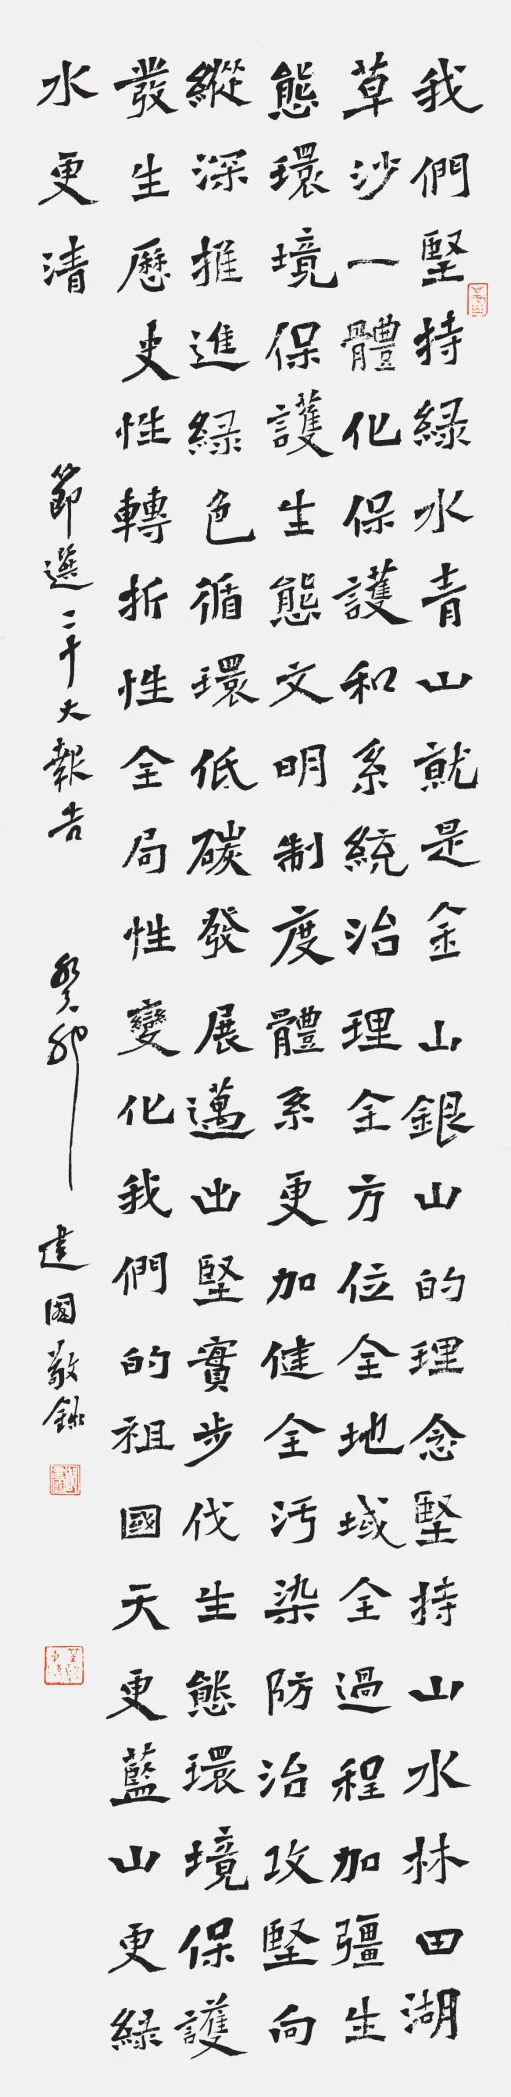 我們堅持緑水青山就是金山銀山的理念堅持山水林田湖
草沙一體化保護和系統治理全方位全地域全過程加彊生
態環境保護生態文明制度體系更加健全污染防治攻堅向
縱深推進緑色循環低碳發展邁出堅實步伐生態環境保護
發生歷史性轉折性全局性變化我們的祖國天更藍山更緑
水更清
節選二十大報告
癸卯
建國敬錄